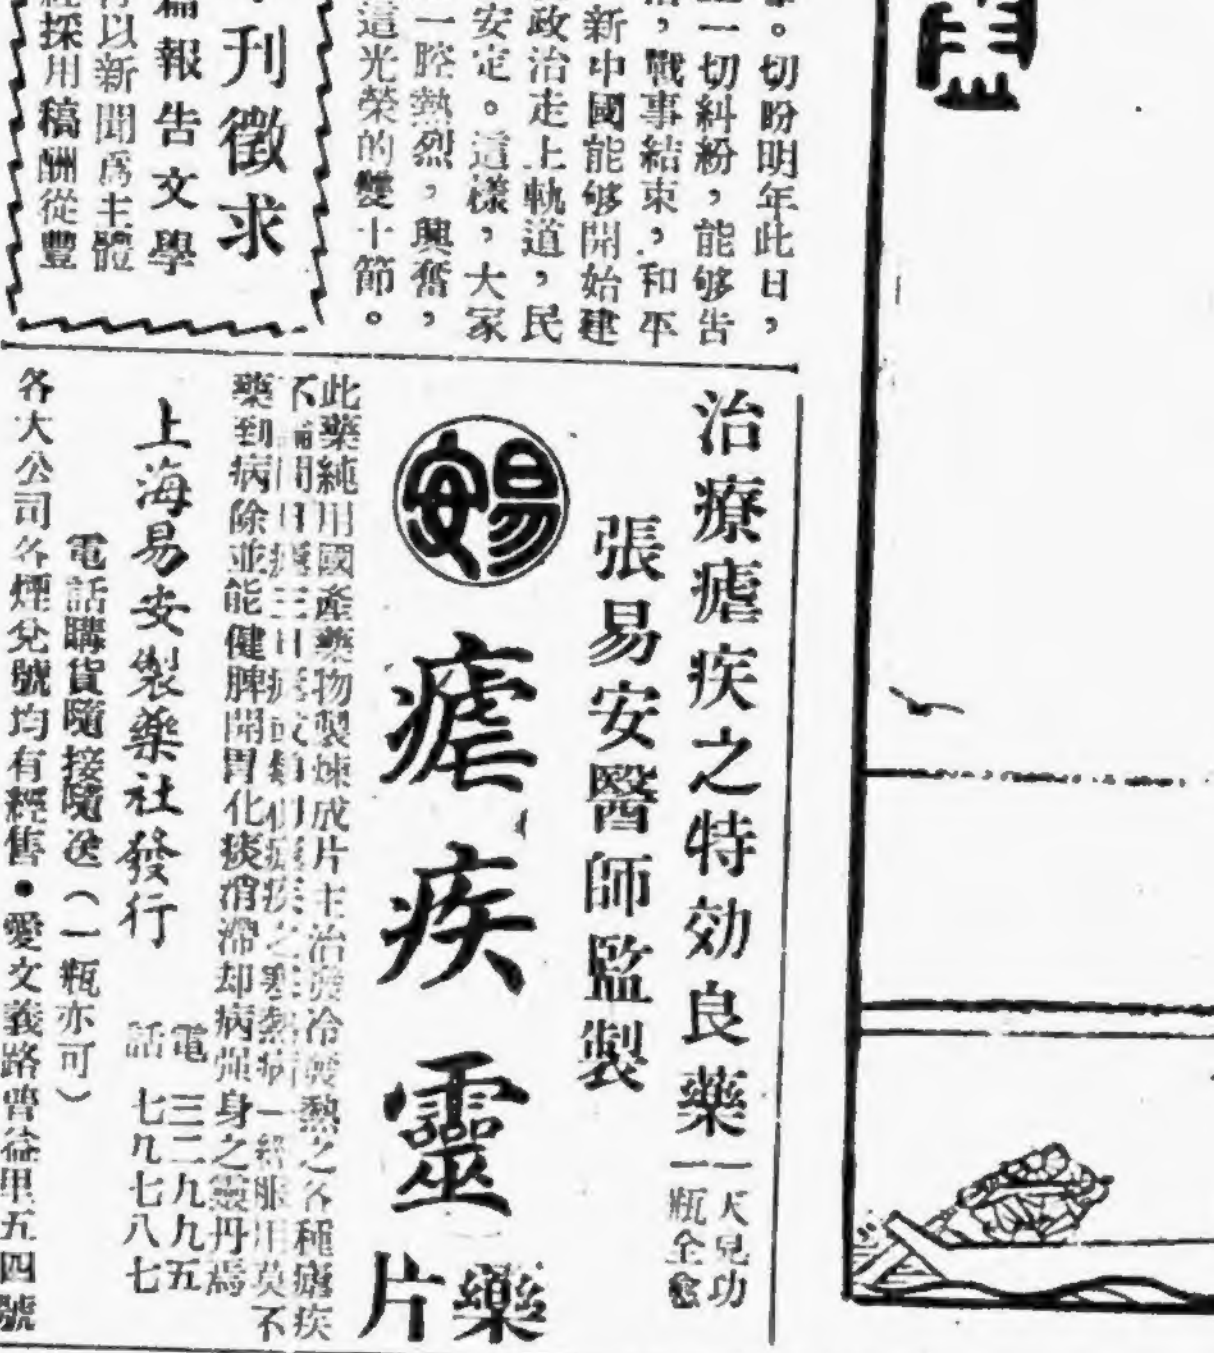 。切盼明年此日，
一切糾紛，能够告
，戰事結束，和平
新中國能够開始建
政治走上軌道，民
安定。這樣，大家
一腔熱烈，興奮，
這光榮的雙十節。
刊徵求
報告文學
以新聞爲主體
採用稿酬從豐
治療瘧疾之特効良藥
一天見功
一瓶全愈
張易安醫師監製
易安
瘧疾靈
藥片
此藥純用國產藥物製煉成片主治發冷發熱之各種瘧疾
不論間日瘧三日瘧或類似瘧疾之寒熱病一經服用莫不
藥到病除並能健脾開胃化痰消滯却病強身之靈丹焉
上海易安製藥社發行
電話
三二九九五
七九七八七
電話購貨隨接隨送（一瓶亦可）
各大公司各煙兌號均有經售●愛文義路普益里五四號